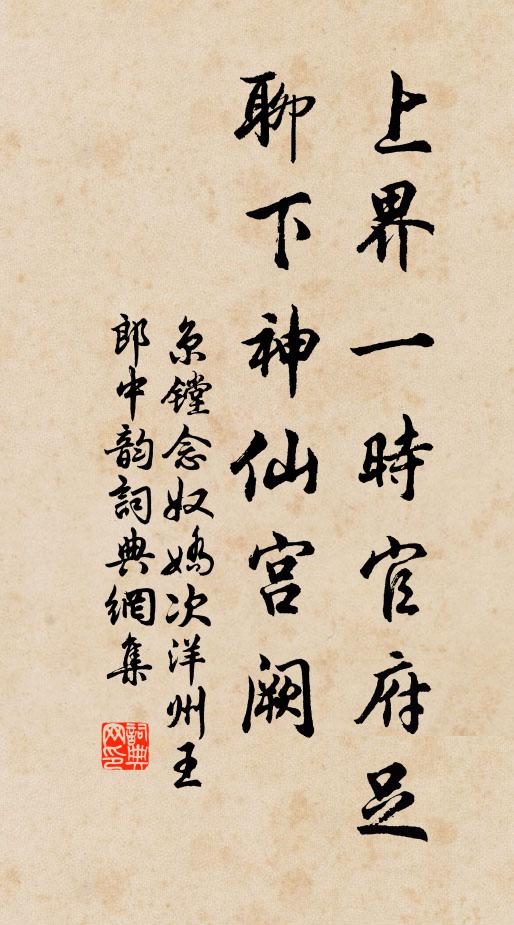 上界一時官府足
聊下神仙宫阙
京鏜念奴嬌次洋州王
郎中韵詞典網集
詞典
网印